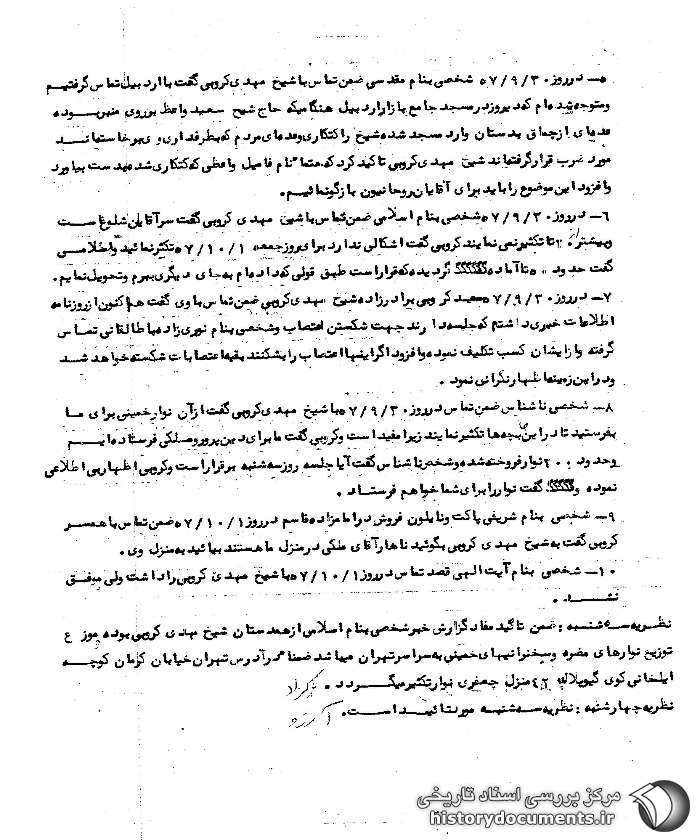 ۵ـ در روز ۵۷/۹/۳۰ شخصی بنام مقدسی ضمن تماس با شیخ مهدی کروبی گفت با اردبیل تماس گرفتیم
و متوجه شده‌ام که دیروز در مسجد جامع بازار اردبیل هنگامیکه حاج شیخ سعید واعظ بر روی منبر بوده
عده‌ای از چماق بدستان وارد مسجد شده شیخ را کتکاری و عده‌ای مردم که بطرفداری وی برخاسته‌اند
مورد ضرب قرار گرفته‌اند شیخ مهدی کروبی تاکید کرد که حتما نام فامیل واعظی که کتکاری شده بدست بیاورد
و افزود این موضوع را باید برای آقایان روحانیون بازگو نمائیم.
۶ـ در روز ۵۷/۹/۳۰ شخصی بنام اسلامی ضمن تماس با شیخ مهدی کروبی گفت سر آقایان شلوغ است
و بیشتر از تا تکثیر نمی نمایند کروبی گفت اشکالی ندارد برای روز جمعه ۵۷/۱۰/۱ تکثیر نمائید و اسلامی
گفت حدود تا آماده گردیده که قرار است طبق قولی که داده‌ام به جای دیگری ببرم و تحویل نمایم.
۷ـ در روز ۵۷/۹/۳۰ سعید کروبی برادرزاده شیخ مهدی کروبی ضمن تماس با وی گفت هم اکنون از روزنامه
اطلاعات خبری داشتم که جلسه دارند جهت شکستن اعتصاب و شخصی بنام نوری زاده با طالقانی تماس
گرفته و از ایشان کسب تکلیف نموده و افزود اگر اینها اعتصاب را بشکنند بقیه اعتصابات شکسته خواهد شد
و در این زمینه اظهار نگرانی نمود.
۸ـ شخصی ناشناس ضمن تماس در روز ۵۷/۹/۳۰ با شیخ مهدی کروبی گفت از آن نوار خمینی برای ما
بفرستید تا در این بچه‌ها تکثیر نمایند زیرا مفید است و کروبی گفت ما برای دین پرور و ملکی فرستاده‌ایم
و حدود ۲۰۰ نوار فروخته شده و شخص ناشناس گفت آیا جلسه روز سه شنبه برقرار است و کروبی اظهار بی اطلاعی
نموده و گفت نوار را برای شما خواهم فرستاد.
۹ـ شخصی بنام شریفی پاکت و نایلون فروش در امامزاده قاسم در روز ۵۷/۱۰/۱ ضمن تماس با همسر
کروبی گفت به شیخ مهدی کروبی بگوئید ناهار آقای ملکی در منزل ما هستند بیائید به منزل وی.
۱۰ـ شخصی بنام آیت الهی قصد تماس در روز ۵۷/۱۰/۱ با شیخ مهدی کروبی را داشت ولی موفق
نشد.
نظریه سه شنبه: ضمن تائید مفاد گزارش خبر شخصی بنام اسلامی از همدستان شیخ مهدی کروبی بوده و موزع
توزیع نوارهای مضره و سخنرانیهای خمینی به سراسر تهران میباشد ضمنا در آدرس تهران خیابان کرمان کوچه
ایلخانی کوی منزل جعفری نوار تکثیر میگردد.
نظریه چهارشنبه: نظریه سه شنبه مورد تائید است.
مرکز بررسی اسناد تاریخی
historydocuments.ir